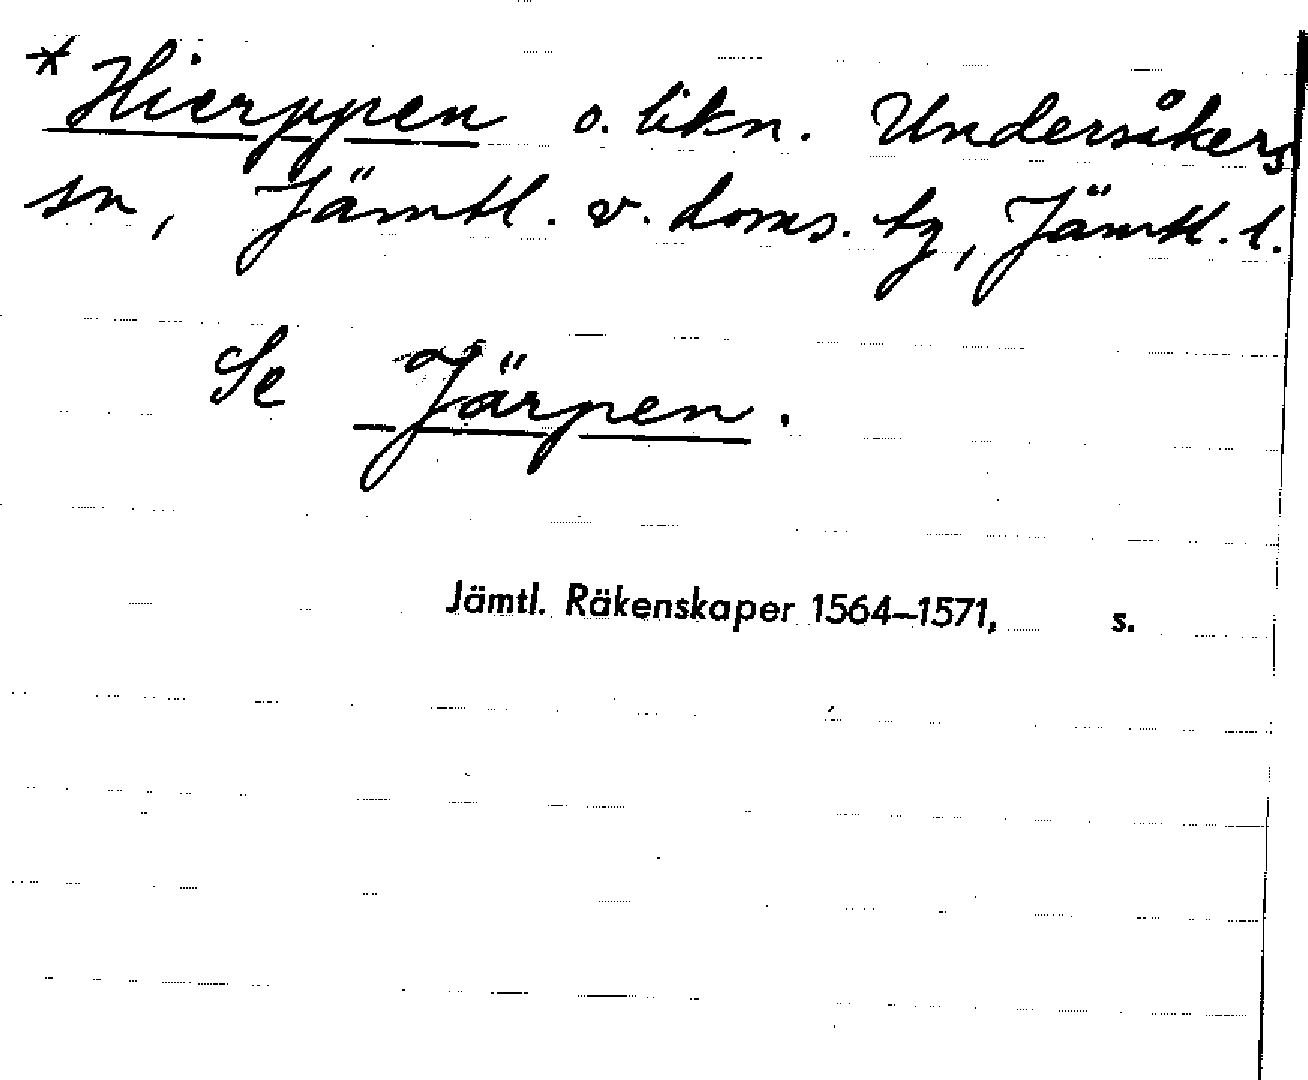 * Hierppen o. likn. Undersåkers
sn, Jämtl. v. doms. tg, Jämtl. l.
Se Järpen.
Jämtl. Räkenskaper 1564–1571, s.